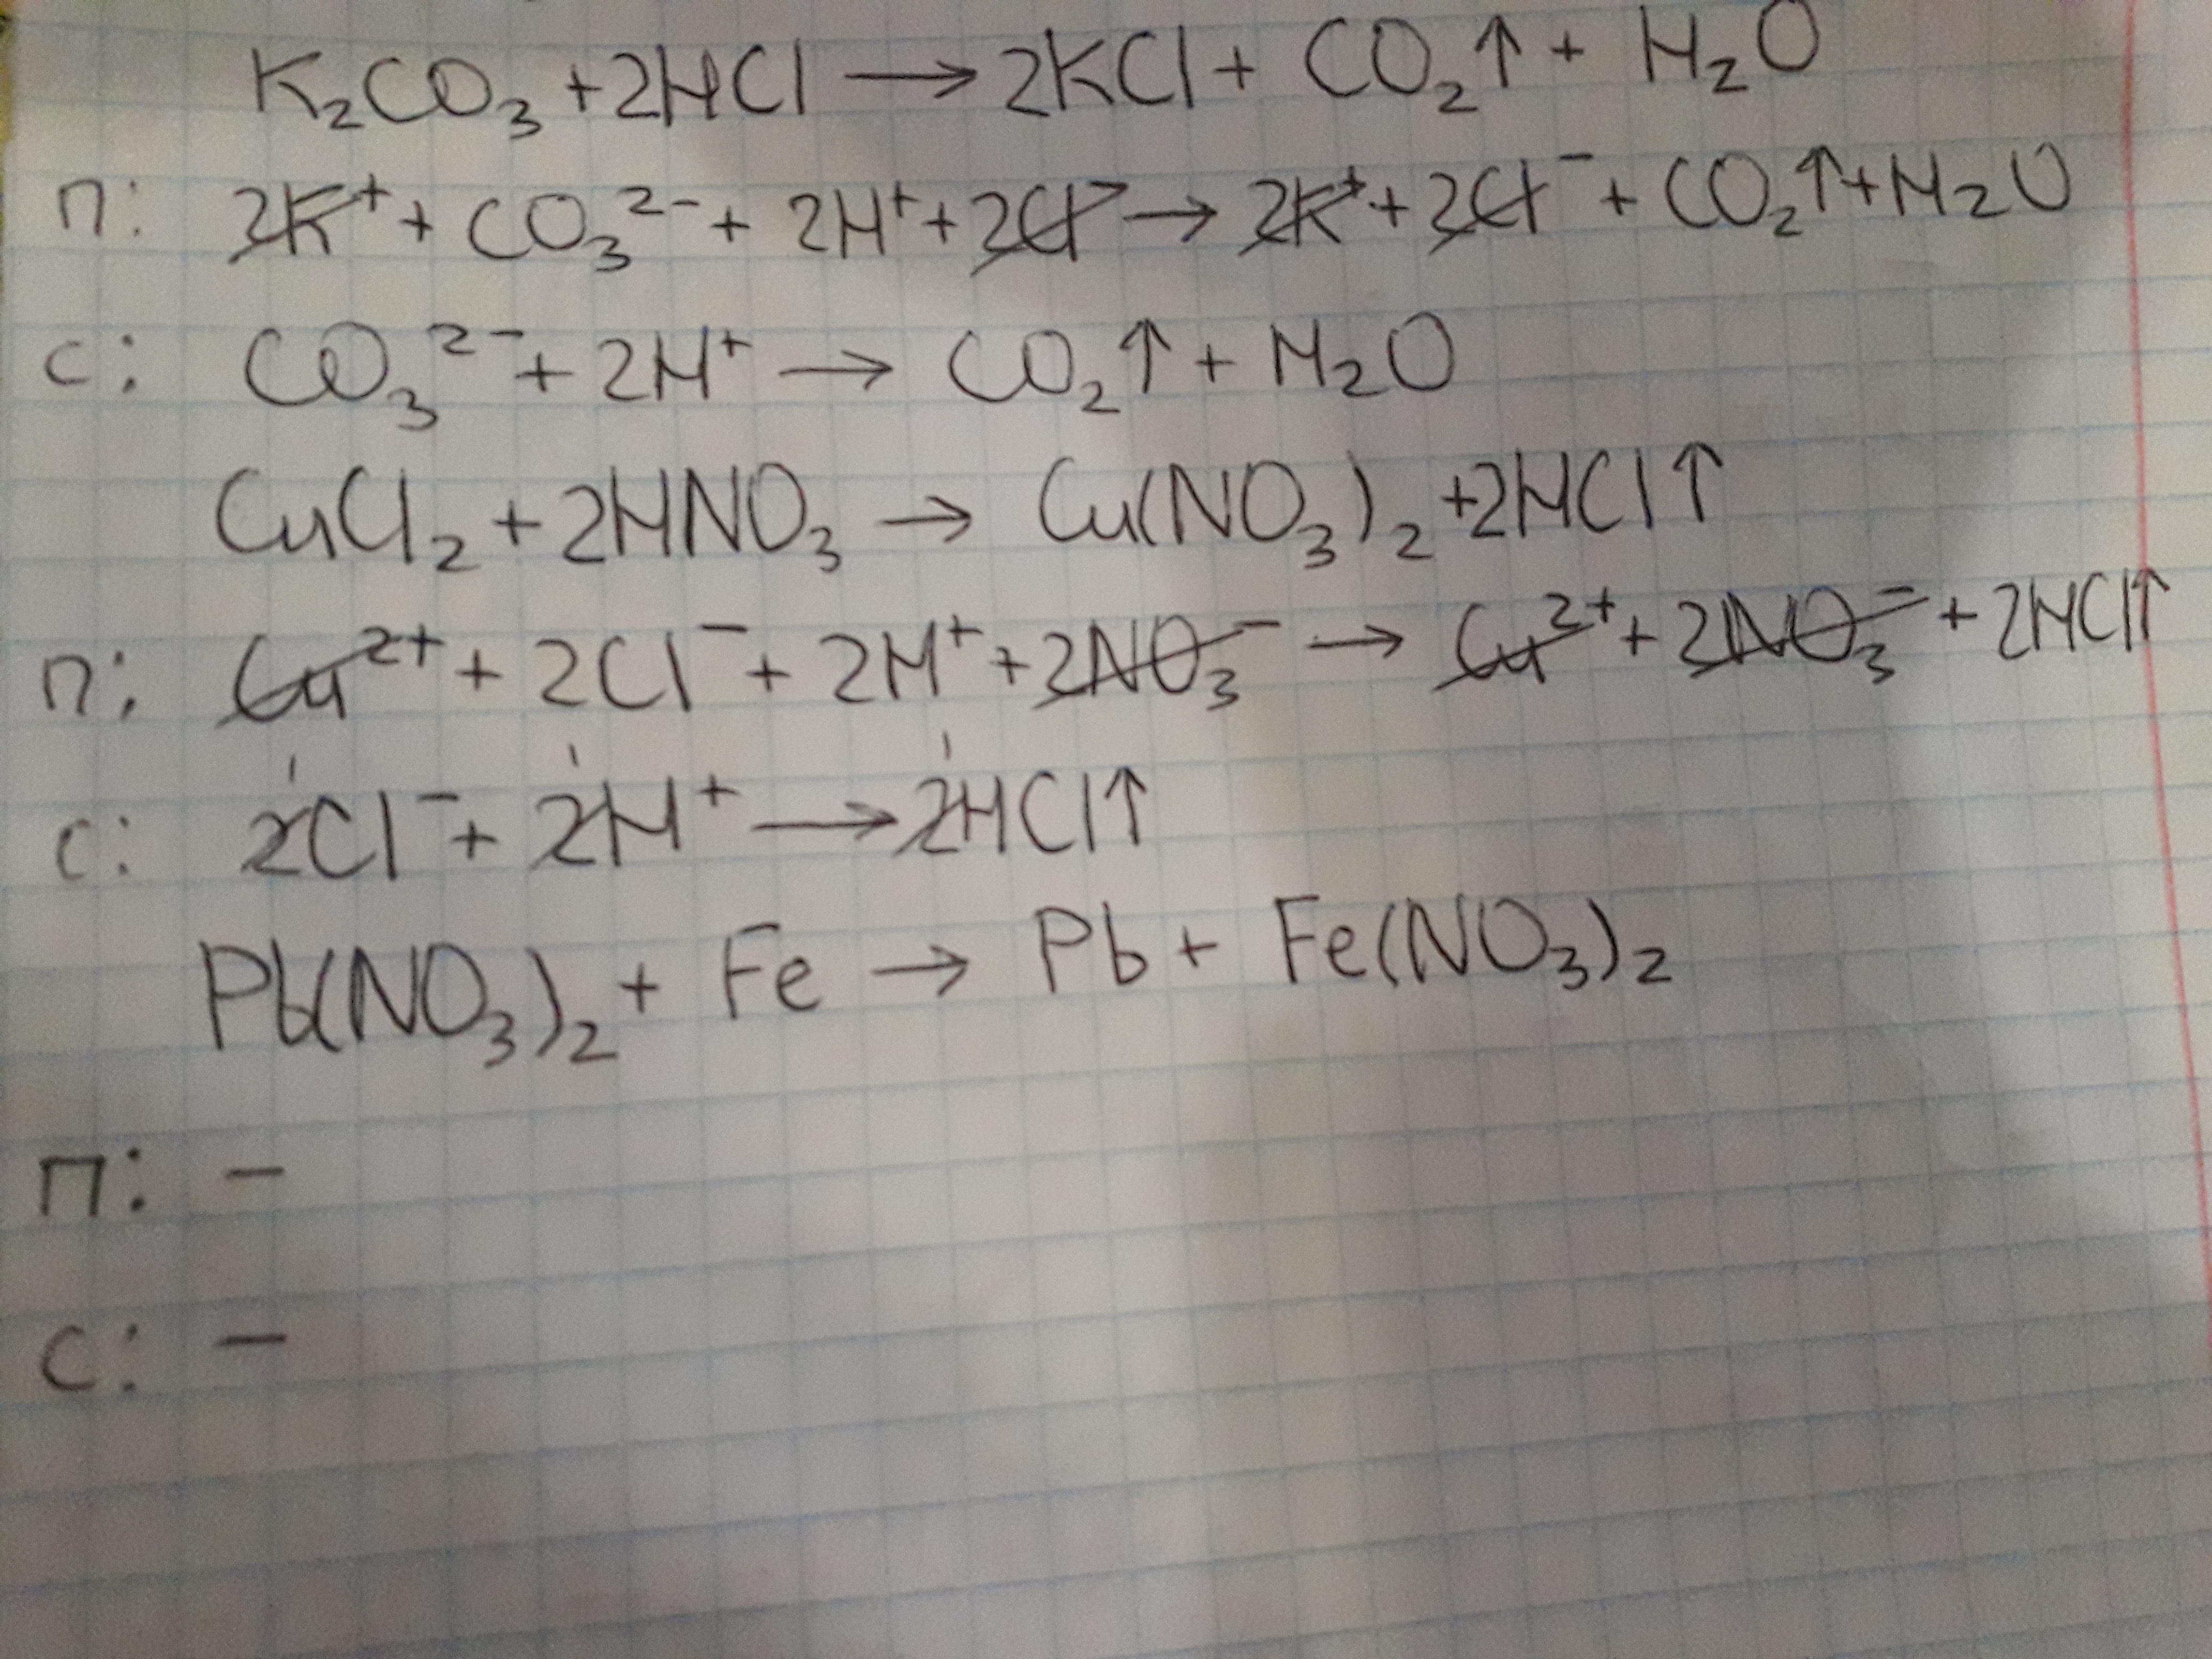 K₂CO₃ + 2HCl → 2KCl + CO₂↑ + H₂O
П: 2K⁺ + CO₃²⁻ + 2H⁺ + 2Cl⁻ → 2K⁺ + 2Cl⁻ + CO₂↑ + H₂O
С: CO₃²⁻ + 2H⁺ → CO₂↑ + H₂O
CuCl₂ + 2HNO₃ → Cu(NO₃)₂ + 2HCl↑
П: Cu²⁺ + 2Cl⁻ + 2H⁺ + 2NO₃⁻ → Cu²⁺ + 2NO₃⁻ + 2HCl↑
1 1 1
С: 2Cl⁻ + 2H⁺ → 2HCl↑
Pb(NO₃)₂ + Fe → Pb + Fe(NO₃)₂
П: –
С: –